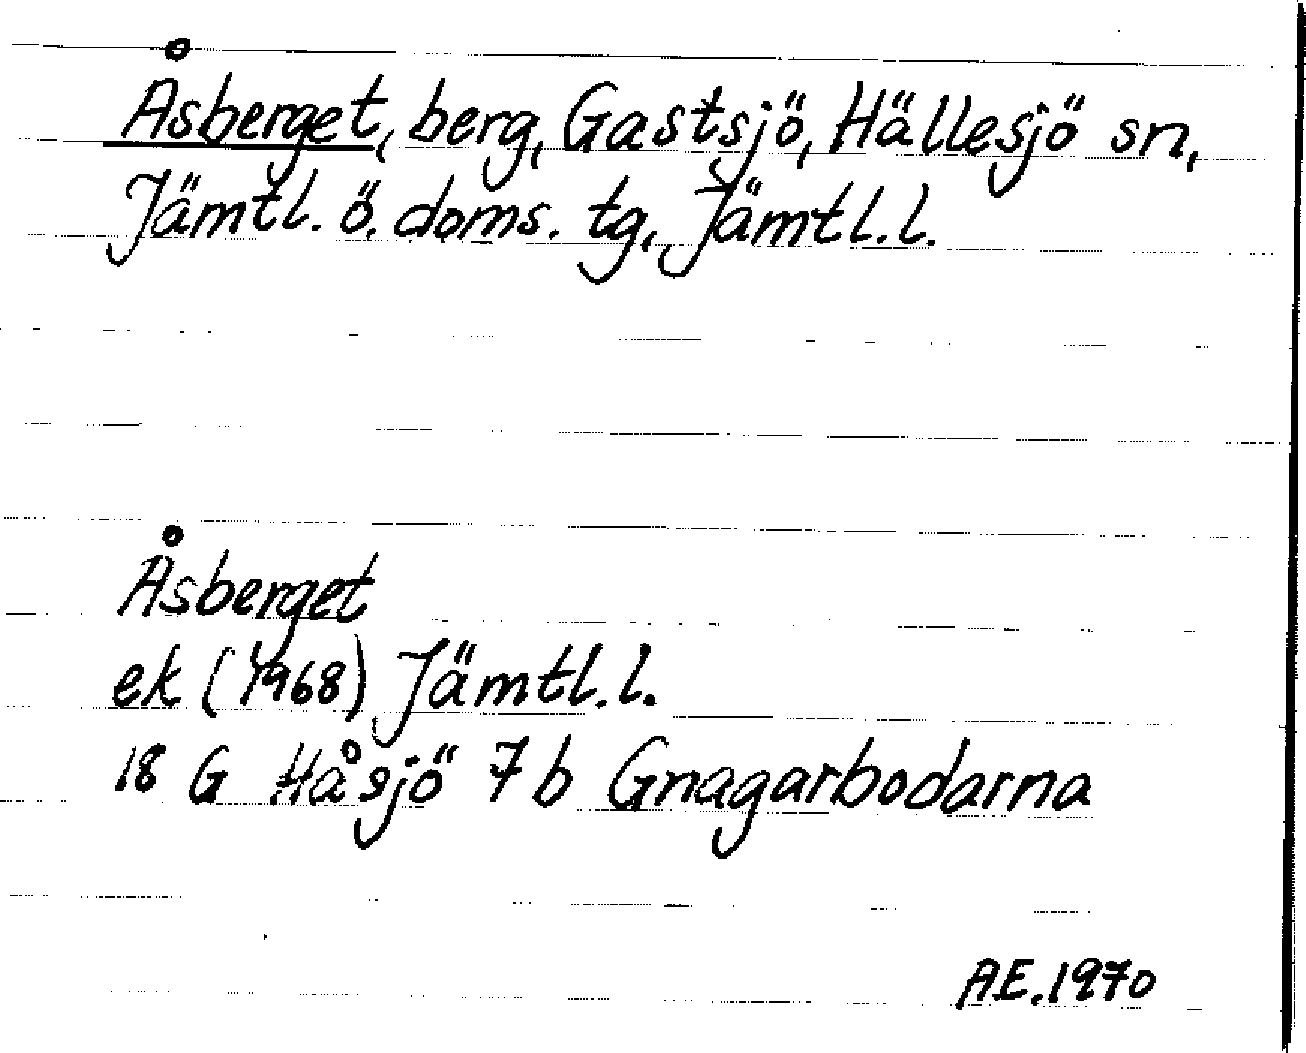 Åsberget, berg, Gastsjö, Hällesjö sn,
Jämtl. ö. doms. tg, Jämtl.l.
Åsberget
ek (1968) Jämtl.l.
18 G Håsjö 7b Gnagarbodarna
A.E.1970